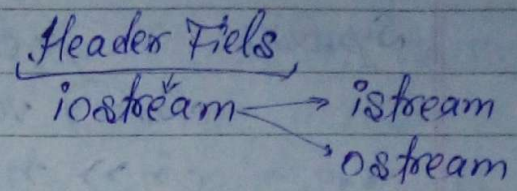 Header Fiels
iostream → istream
ostream